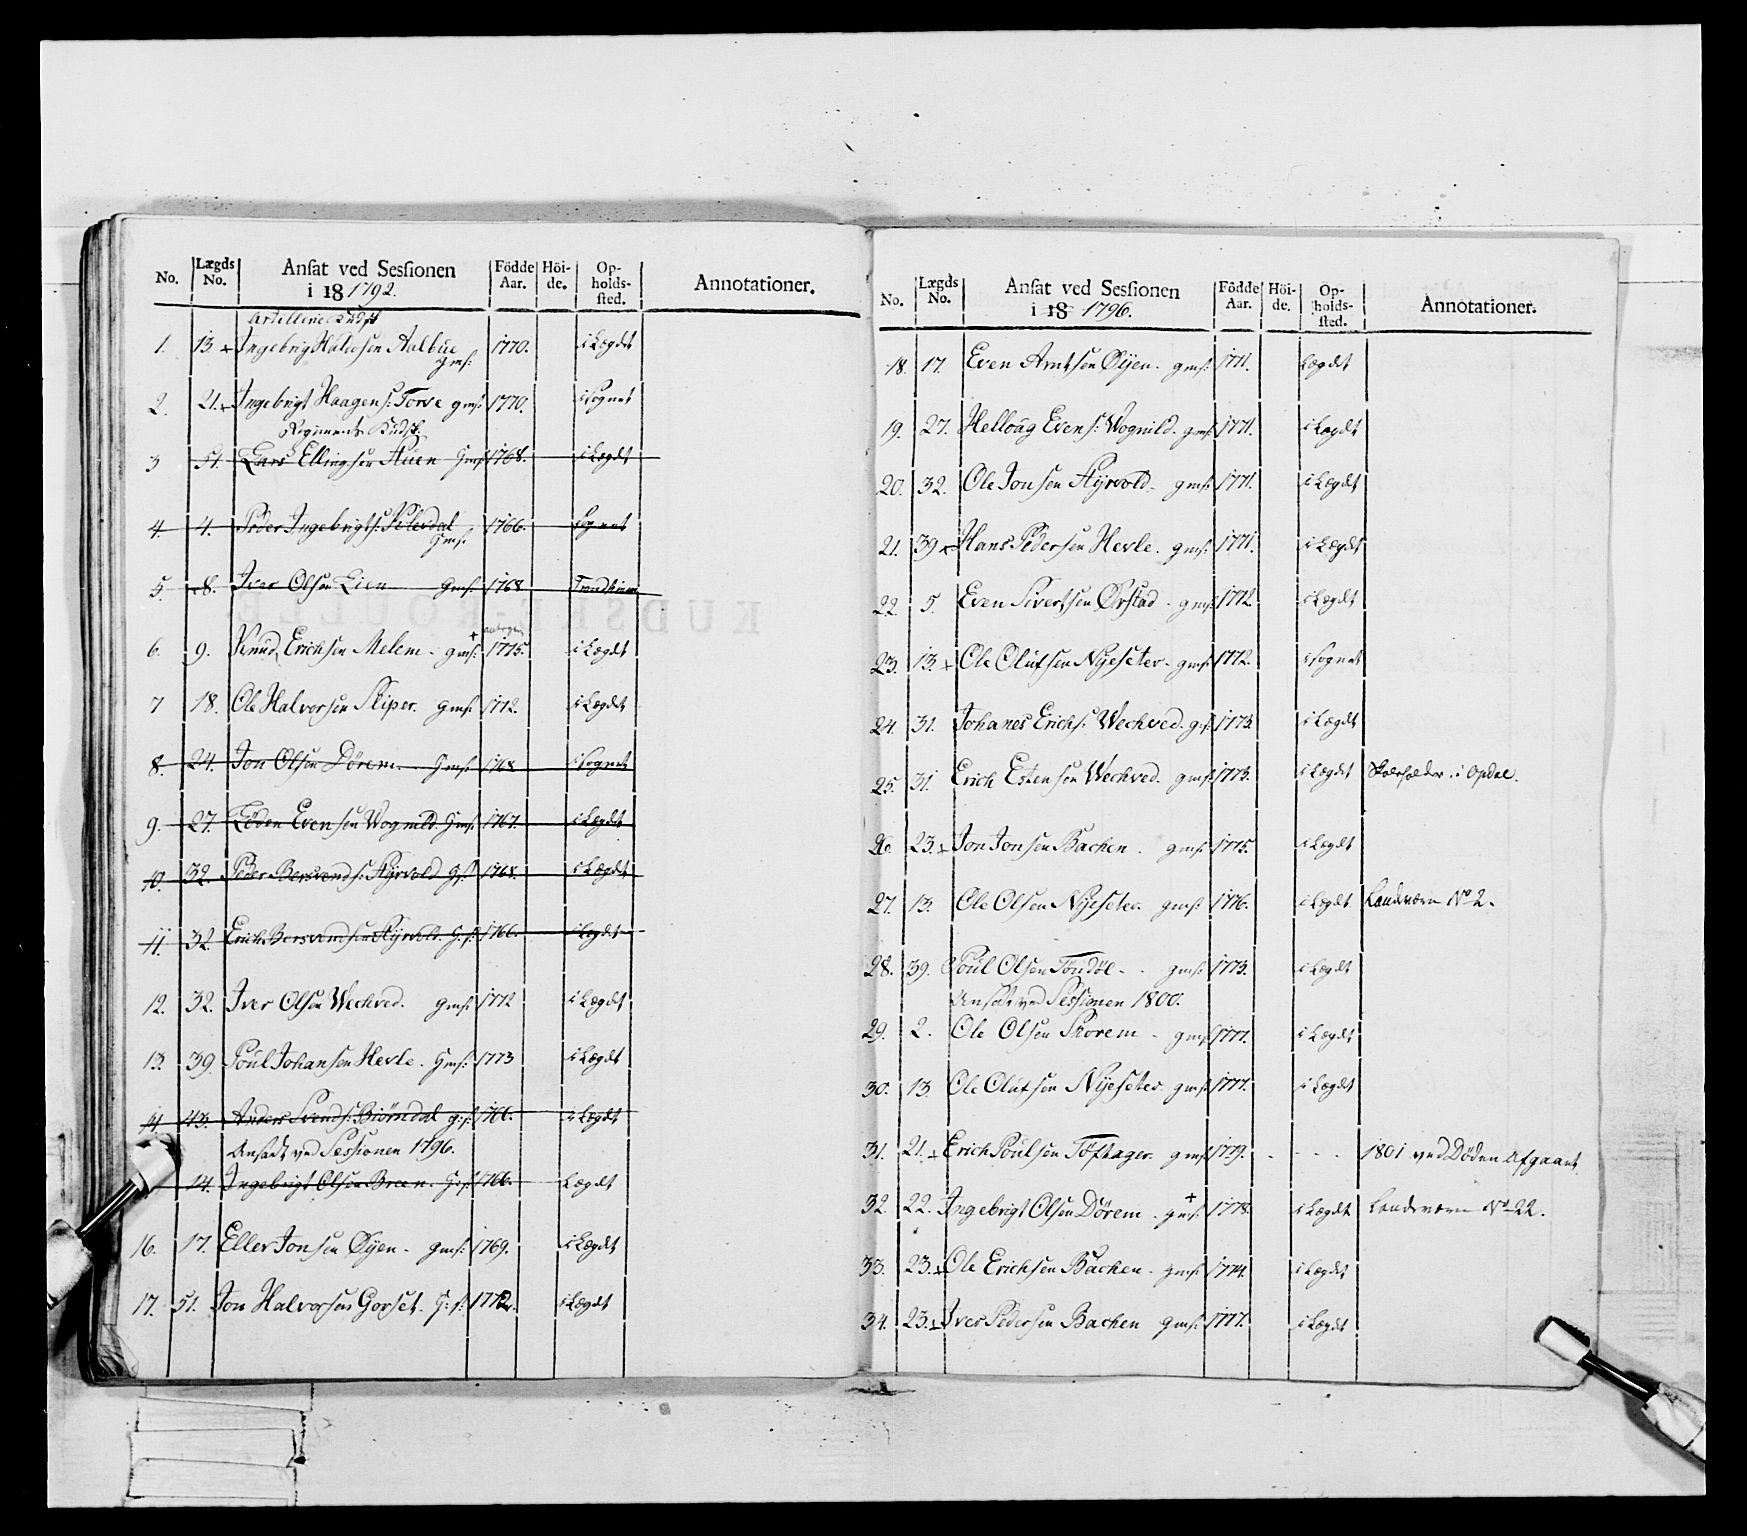 No. Lægds No. Ansat ved Sessionen i 18 1792. Födde Aar. Höi-de. Op-holds-sted. Annotationer.
Artellerie Kudsk
1. 13. Ingebrig Halvorsen Aalbue gms: 1770. i Lægdt
2. 21. Ingebrigt Haagens: Torve gms: 1770. i Sognet
Regiments Kudsk.
3 51. Lars Ellingsen Huen Gms: 1768. i Lægdt
4. 4. Peder Ingebrigts: Gms: 1766. Sognet
5. 8. Iver Olsen Lien Gms: 1768 Trondhiem
6. 9. Knud Erichsen Melem - gms: 1775. i Lægdt
7 18. Ole Halvorsen Skiper. gms: 1772. i Lægdt
8. 24. Jon Olsen Dörem. Gms: 1768 i Sognet
9. 27. Loden Evensen Wognild. Gms: 1767. i Lægdt
10. 32. Peder Bersvends: Hyrvold Gs: 1768. i Lægdt
11. 32 Erich Bersvendsen Hyrvold. G:s: 1766. i Lægdt
12. 32. Iver Olsen Wechved. gms: 1772 i Lægdt
13. 39. Poul Johansen Hevle. Gms: 1773 i Lægdt
14 43. Anders Svends: Biörndal g:s: 1766. i Lægdt
Ansadt ved Sessionen 1796.
14. Ingebrigt Olsen Breen. G:s: 1766. Lægdt
16. 17. Eller Jonsen Öyen - gms: 1769. i Lægdt
17. 51. Jon Halvorsen Gorset. G:s: 1772. i Lægdt
No. Lægds No. Ansat ved Sessionen i 18 1796. Födde Aar. Höi-de. Op-holds-sted. Annotationer.
18. 17. Even Arntsen Öyen. gms: 1771. Lægdt
19. 27. Helloug Evens: Wognild. gms: 1771. i Lægdt
20. 32. Ole Jonsen Hyrvold. gms: 1771. i Lægdt
21. 39 Hans Pedersen Hevle. gms: 1771. i Lægdt
22. 5. Even Sivertsen Örstad - gms: 1772 i Lægdt
23. 13. Ole Olufsen Nyeseter. gms: 1772. i Sognet
24. 31. Johanes Erichs: Wechved. g:s: 1773. i Lægdt
25. 31. Erich Estensen Wechved. gms: 1773. i Lægdt Skoleholder i Opdal.
26. 23. Jon Jonsen Bachen. gms: 1775. i Lægdt
27. 13. Ole Olsen Nyeseter. gms: 1776. i Lægdt Landværn No 2.
28. 39. Poul Olsen Töndöl - - gms: 1773. i Lægdt
Ansadt ved Sessionen 1800.
29. 2. Ole Olsen Skorem - gms: 1777. i Lægdt
30. 13. Ole Olufsen Nyeseter gms: 1777. i Lægdt
31. 21. Erich Poulsen Töftager. gms: 1779. - - - - 1801 ved Döden Afgaaet
32. 22. Ingebrigt Olsen Dörem. gms: 1778. i Lægdt Landværn No 22.
33. 23. Ole Erichsen Bachen. gms: 1774. i Lægdt
34. 23. Iver Pedersen Bachen gms: 1777. i Lægdt